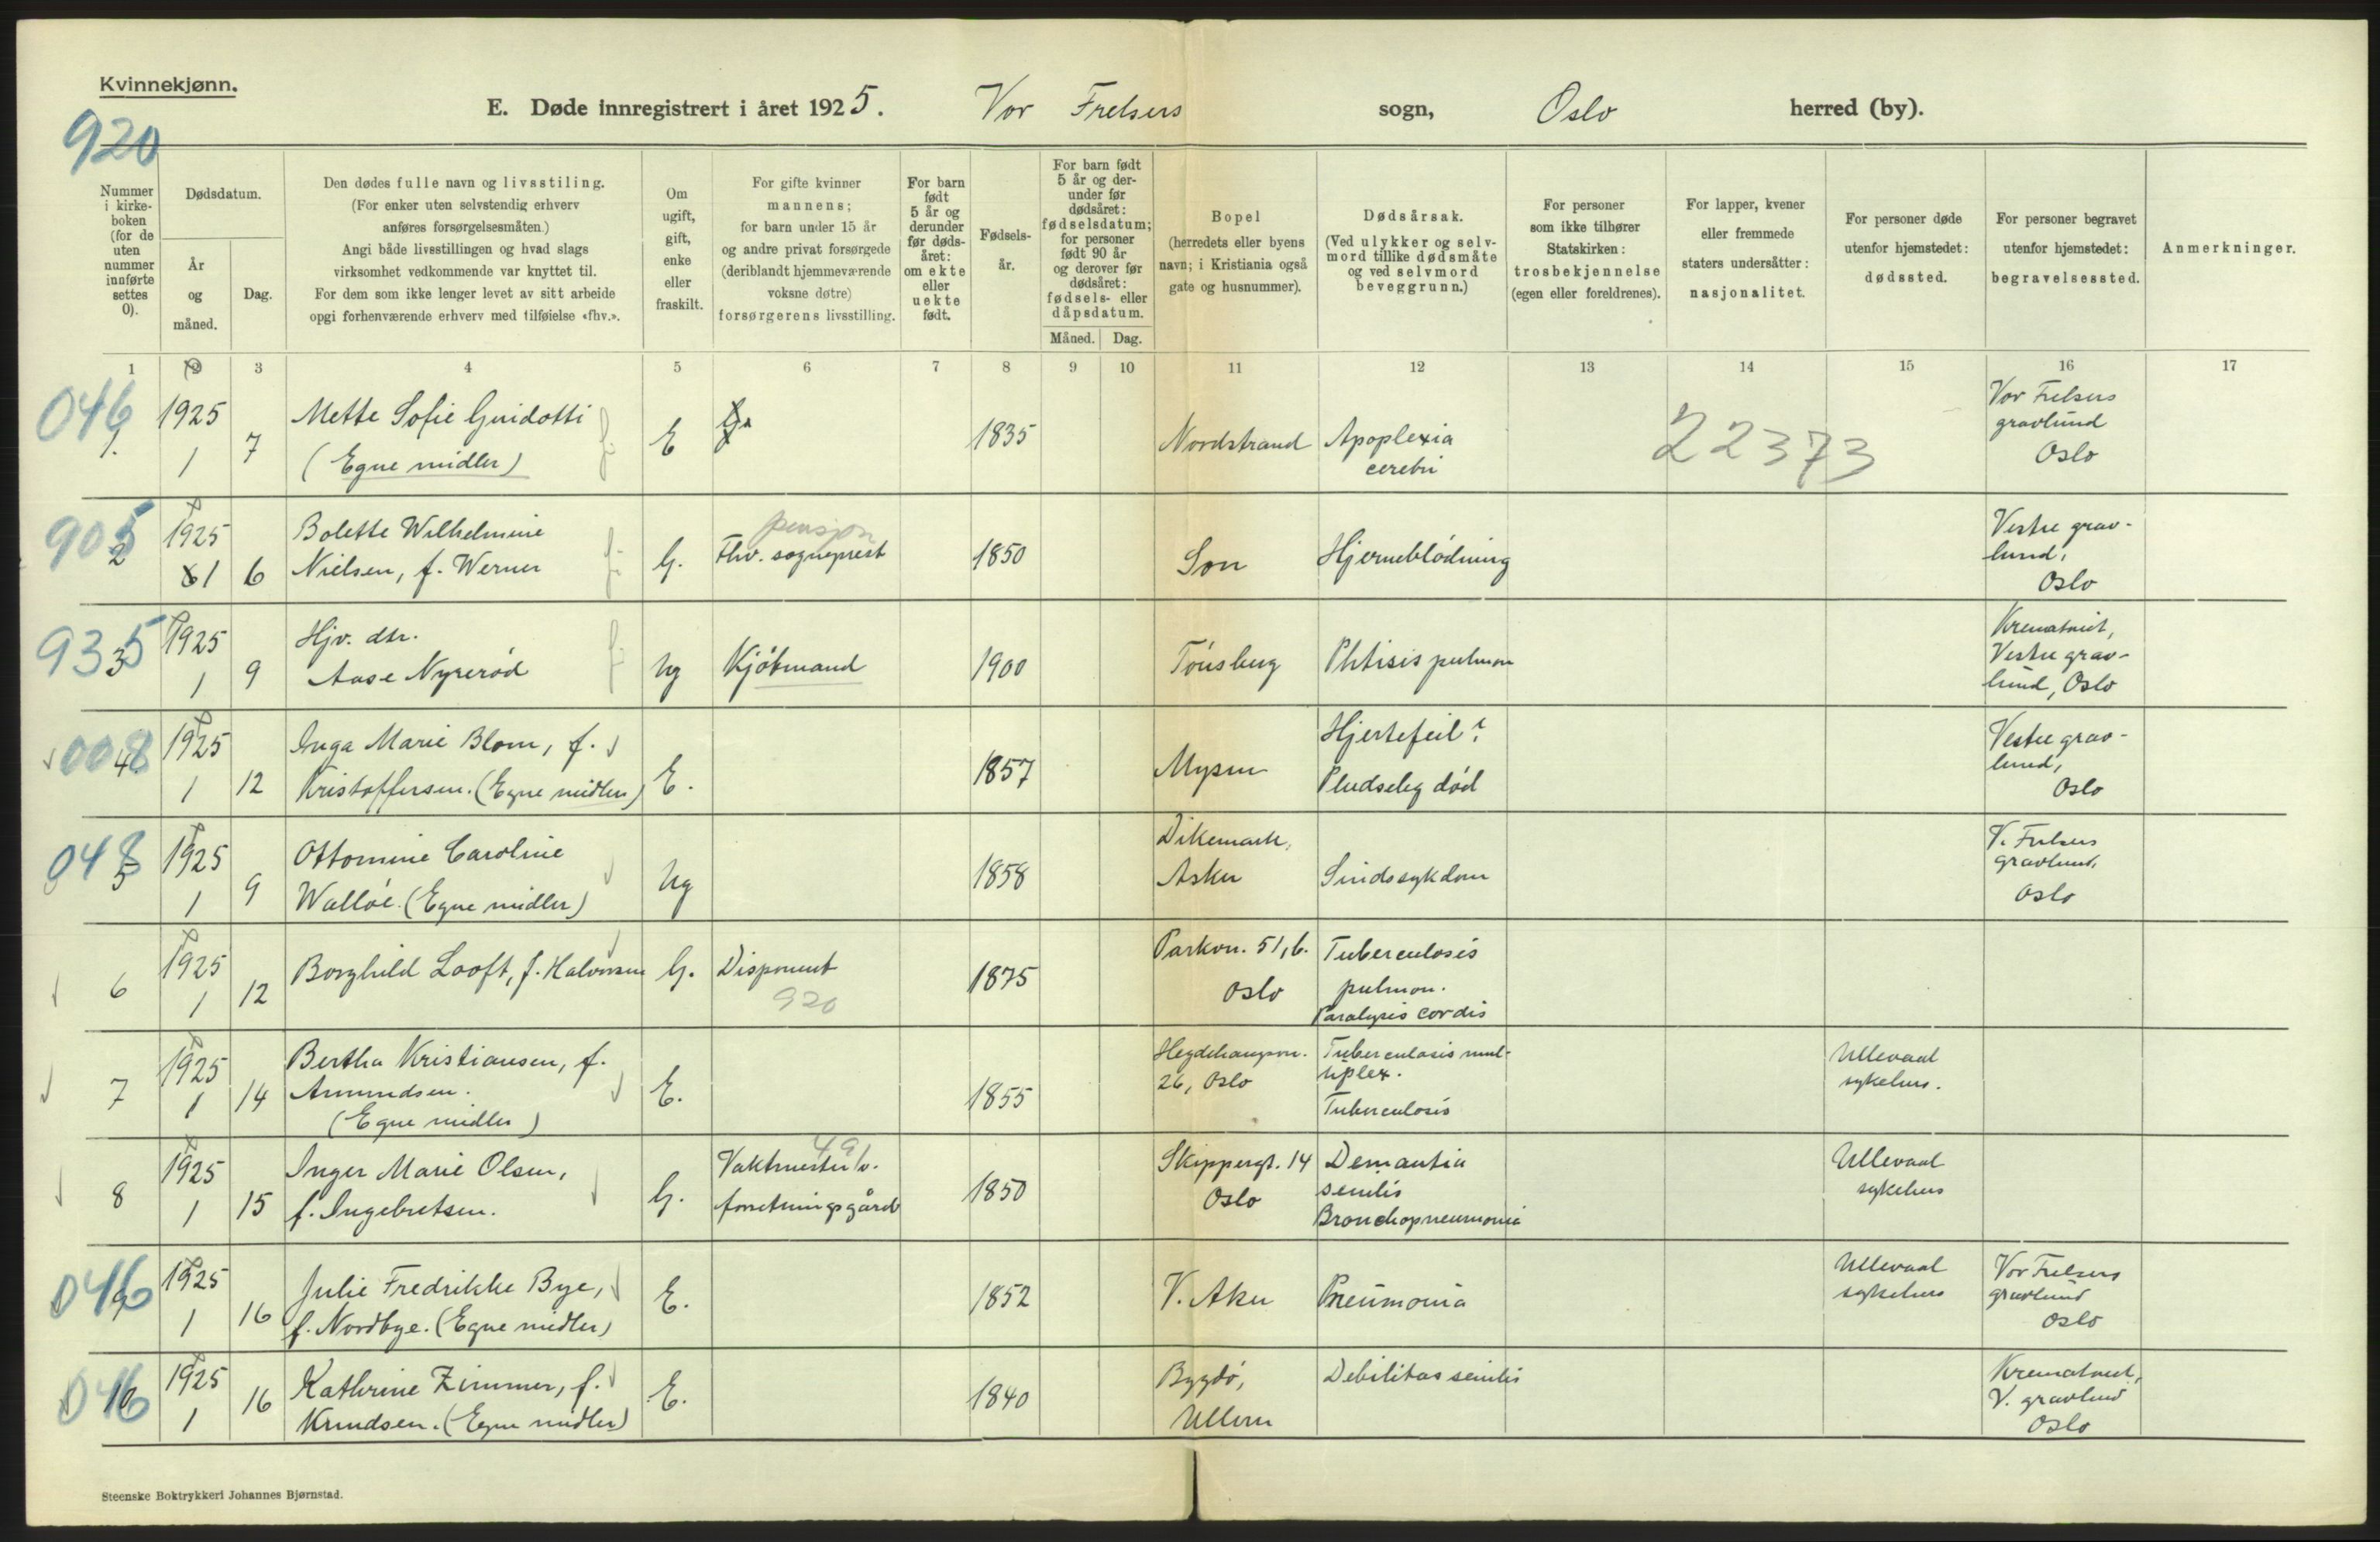 Kvinnekjønn.
920
E. Døde innregistrert i året 1925. Vor Frelsers sogn, Oslo herred (by).
Nummer i kirkeboken (for de uten nummer innførte settes 0).
Dødsdatum.
År og måned.
Dag.
Den dødes fulle navn og livsstiling.
(For enker uten selvstendig erhverv
anføres forsørgelsesmåten.)
Angi både livsstillingen og hvad slags
virksomhet vedkommende var knyttet til.
For dem som ikke lenger levet av sitt arbeide
opgi forhenværende erhverv med tilføielse «fhv.».
Om
ugift,
gift,
enke
eller
fraskilt.
For gifte kvinner
mannens;
for barn under 15 år
og andre privat forsørgede
(deriblandt hjemmeværende
voksne døtre)
forsørgerens livsstilling.
For barn
født
5 år og
derunder
før døds-
året:
om ekte
eller
uekte
født.
Fødsels-
år.
For barn født
5 år og der-
under før
dødsåret:
fødselsdatum;
for personer
født 90 år
og derover før
dødsåret:
fødsels- eller
dåpsdatum.
Måned. Dag.
Bopel
(herredets eller byens
navn; i Kristiania også
gate og husnummer).
Dødsårsak.
(Ved ulykker og selv-
mord tillike dødsmåte
og ved selvmord
beveggrunn.)
For personer
som ikke tilhører
Statskirken:
trosbekjennelse
(egen eller foreldrenes).
For lapper, kvener
eller fremmede
staters undersåtter:
nasjonalitet.
For personer døde
utenfor hjemstedet:
dødssted.
For personer begravet
utenfor hjemstedet:
begravelsessted.
Anmerkninger.
1 2 3 4 5 6 7 8 9 10 11 12 13 14 15 16 17
046
1. 1925 1 7 Mette Sofie Guidotti (Egne midler) E 1835 Nordstrand Apoplexia cerebri 22373 Vor Frelsers gravlund Oslo
905
2 1925 1 6 Bolette Wilhelmine Nielsen, f. Werner G. pensjon Fhv. sogneprest 1850 Son Hjerneblødning Vestre gravlund, Oslo
935
3 1925 1 9 Hjv. dtr. Aase Nyrerød Ug Kjøbmand 1900 Tønsberg Phtisis pulmon Krematoriet, Vestre gravlund, Oslo
008
4 1925 1 12 Inga Marie Blom, f. Kristoffersen. (Egne midler) E. 1857 Mysen Hjertefeil? Pludselig død Vestre gravlund, Oslo
048
5 1925 1 9 Ottomine Caroline Walløe. (Egne midler) Ug 1858 Dikemark, Asker Sindssykdom V. Frelsers gravlund, Oslo
6 1925 1 12 Borghild Looft, f. Halvorsen G. Disponent 920 1875 Parkvn. 51, b. Oslo Tuberculosis pulmon. Paralysis cordis
7 1925 1 14 Bertha Kristiansen, f. Amundsen. (Egne midler) E. 1855 Hegdehaugsvn. 26, Oslo Tuberculosis multiplex. Tuberculosis Ullevaal sykehus.
8 1925 1 15 Inger Marie Olsen, f. Ingebretsen. G. Vaktmester v. forretningsgård 1850 Skippergt. 14 Oslo Demantia senilis Bronchopneumonia Ullevaal sykehus
046
9 1925 1 16 Julie Fredrikke Bye, f. Nordbye. (Egne midler) E. 1852 V. Aker Pneumonia Ullevaal sykehus Vor Frelsers gravlund Oslo
046
10 1925 1 16 Kathrine Zimmer, f. Knudsen. (Egne midler) E. 1840 Bygdø, Ullern Debilitas senilis Krematoriet, V. gravlund Oslo
Steenske Boktrykkeri Johannes Bjørnstad.